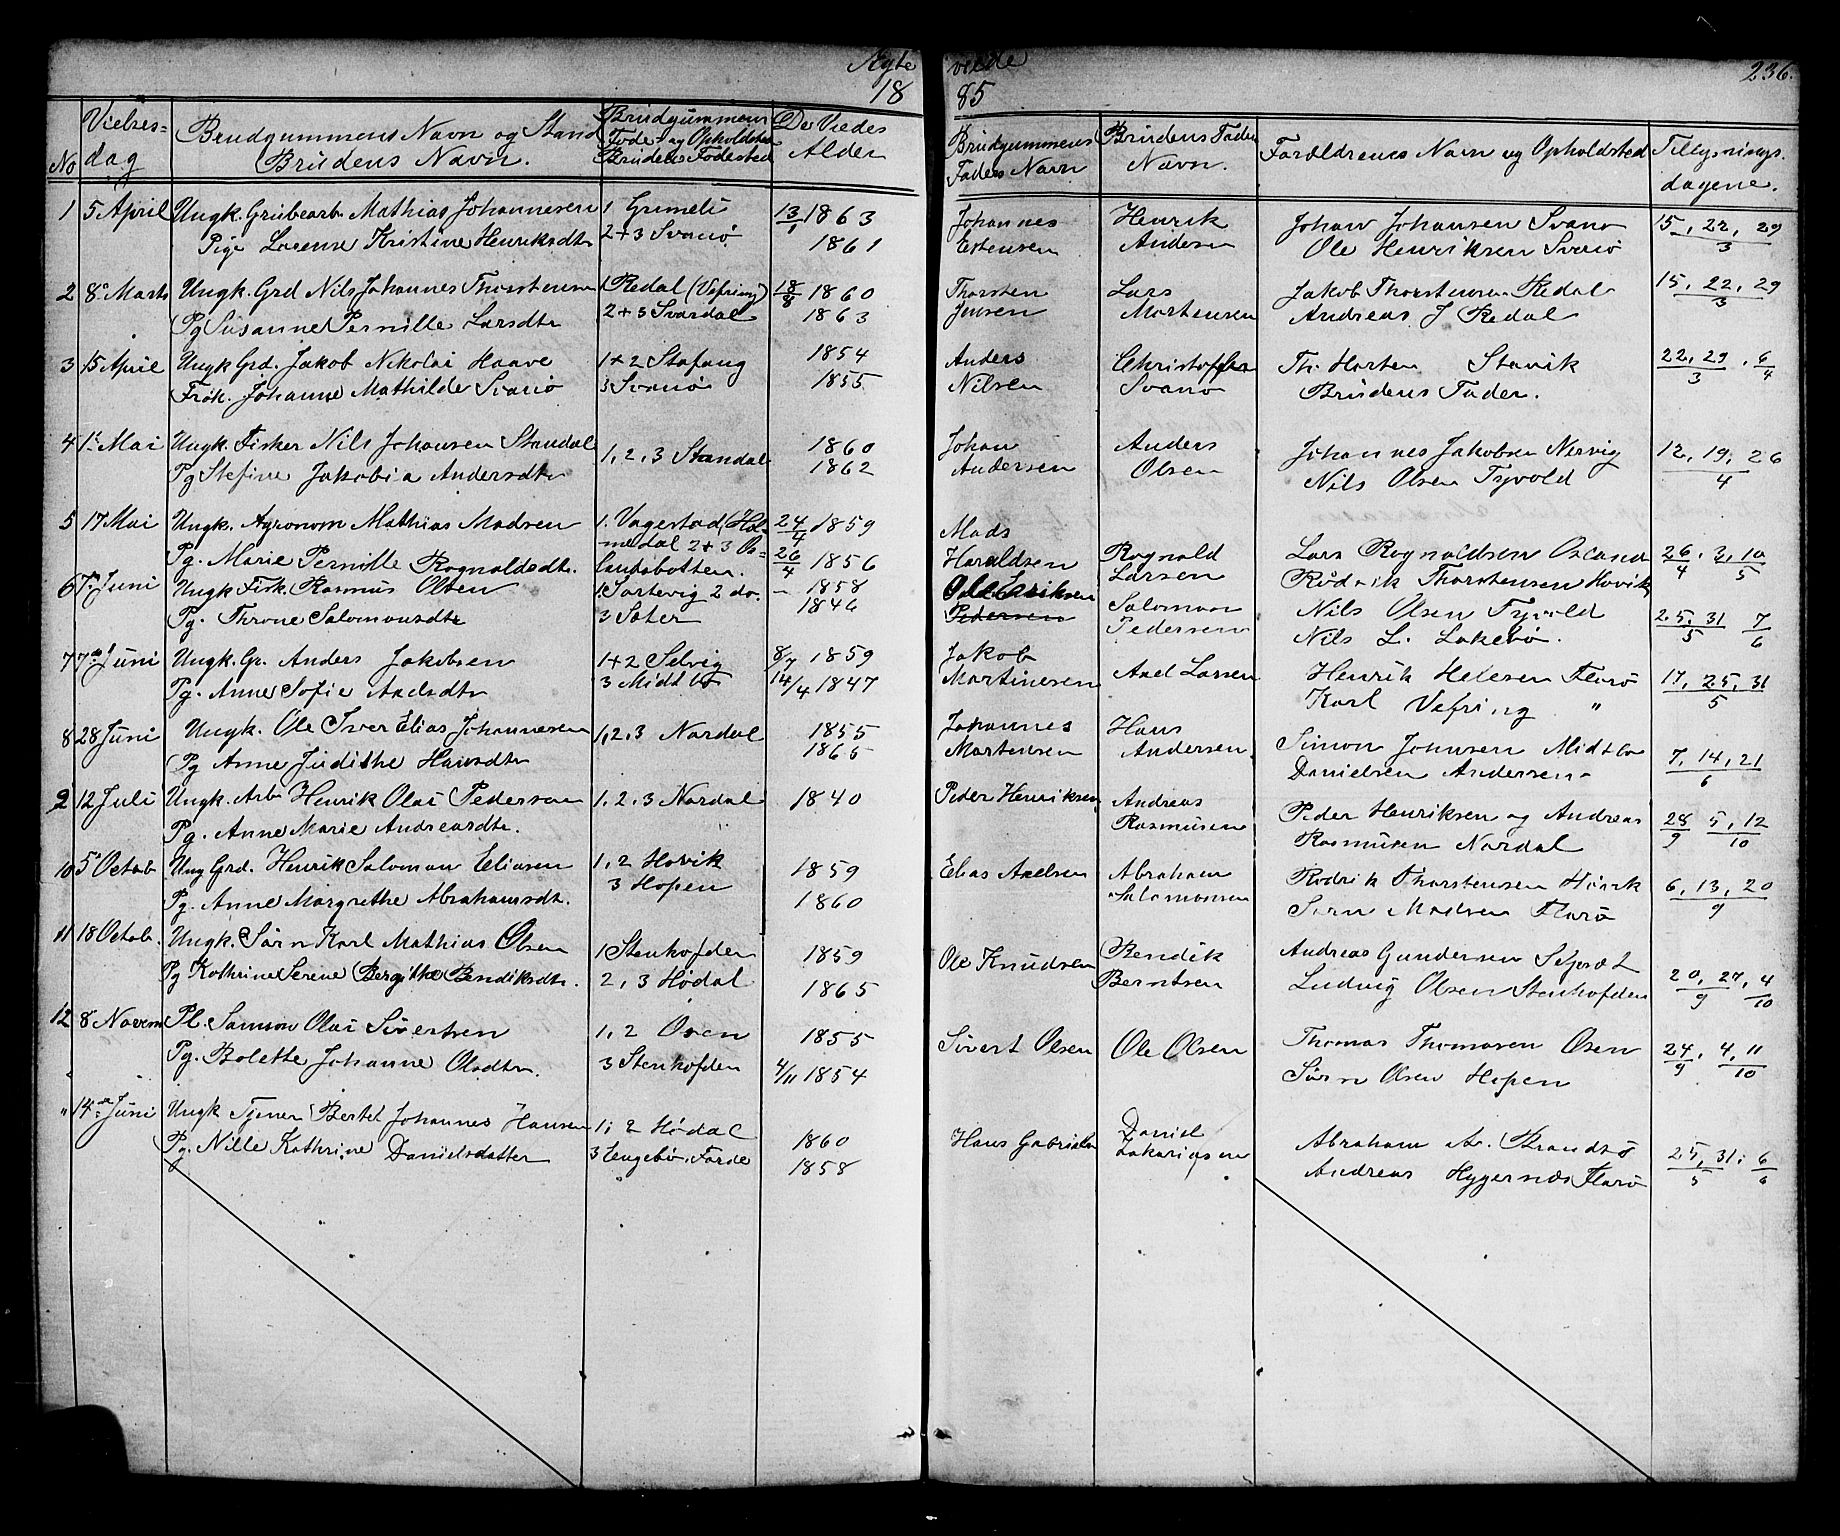 Ægte
viede
236.
18
85
No
Vielses-
dag
Brudgummens Navn og Stand
Brudens Navn.
Brudgummens
Føde og Opholdsted
Brudens Fødested
De Viedes
Alder
Brudgummens
Faders Navn
Brudens Fader
Navn.
Forældrenes Navn og Opholdsted
Tillysnings-
dagene.
1 5 April Ungk. Grubearb. Mathias Johannesen 1 Grimeli 13/1 1863 Johannes Henrik Johan Johansen Svanø 15, 22, 29
Pige Lorense Kristine Henriksdtr 2+3 Svanø 1861 Estensen Andersen Ole Henriksen Svanø 3
2 8de Marts Ungk. Grd Nils Johannes Thorstensen 1 Redal (Vefring) 18/8 1860 Thorsten Lars Jakob Thorstensen Redal 15, 22, 29
Pg Susanne Pernille Larsdtr 2+3 Svardal 1863 Jensen Mortensen Andreas J Redal 3
3 15 April Ungk Grd. Jakob Nikolai Haave 1+2 Stafang 1854 Anders Christoffer Th. Horten Stavik 22, 29 . 6
Frøk. Johanne Mathilde Svanø 3 Svanø 1855 Nilsen Svanø Brudens Fader. 3 4
4 1ste Mai Ungk. Fisker Nils Johansen Standal 1, 2, 3 Standal 1860 Johan Anders Johannes Jakobsen Nervig 12, 19, 26
Pg Stefine Jakobia Andersdtr 1862 Andersen Olsen Nils Olsen Tyvold 4
5 17 Mai Ungk. Agronom Mathias Madsen 1. Vagestad (Hol- 24/4 1859 Mads
medal 2+3 Os-
Pg. Marie Pernille Rognaldsdtr. landsbotten. 26/4 1856 Haraldsen Rognald Larsen Lars Rognaldsen Osland 26/4, 3, 10/5
Rødrik Thorstensen Hovik
6 7de Juni Ungk Fisk. Rasmus Olsen 1 Sortevig 2 do. - 1858 Ole Eriksen Salomon Nils Olsen Tyvold 25, 31 7
Pg. Throne Salomonsdtr 3 Sater 1846 Pedersen Pedersen Nils L. Løkebø. 5 6
7 7de Juni Ungk. Gr. Anders Jakobsen 1+2 Selvig 8/7 1859 Jakob Axel Larsen Henrik Helesen Florø 17, 25, 31
Pg. Anne Sofie Axelsdtr 3 Midtbø 14/4 1847 Martinesen Karl Vefring " 5
8 28 Juni Ungk. Ole Iver Elias Johannesen 1, 2, 3 Nordal 1855 Johannes Hans Simon Johnsen Midtbø 7, 14, 21
Pg Anne Judithe Hansdtr 1865 Mortensen Andersen Danielsen Andersen 6
9 12 Juli Ungk. Arb Henrik Olai Pedersen 1, 2, 3 Nordal 1840 Peder Henriksen Andreas Peder Henriksen og Andreas 28 5, 12
Pg. Anne Marie Andreasdtr. Rasmusen Rasmusen Nordal 9 10
10 5te Octob Ung Grd. Henrik Salomon Eliasen 1, 2 Hovik 1859 Elias Axelsen Abraham Rødrik Thorstensen Hovik 6, 13, 20
Pg. Anne Margrethe Abrahamsdt. 3 Hopen 1860 Salomonsen Sørn Madsen Florø 9
11 18 Octob. Ungk. Sørn Karl Mathias Olsen 1 Stenhofden 1859 Ole Knudsen Bendik Andreas Gundersen 20, 27, 4
Pg Kathrine Serene Bergitte Bendiksdtr. 2, 3 Hødal 1865 Berntsen Ludvig Olsen Stenhofden 9 10
12 8 Novem Pl. Samson Olai Sivertsen 1, 2 Osen 1855 Sivert Olsen Ole Olsen Thomas Thomasen Osen 24, 4, 11
Pg. Bolette Johanne Olsdtr. 3 Stenhofden 4/11 1854 Sørn Olsen Hopen 9 10
" 14de Juni Ungk Tjener Bertel Johannes Hansen 1, 2 Hødal 1860 Hans Gabrielsen Daniel Abraham A. Brandsø 25, 31, 6
Pg. Nille Kathrine Danielsdatter 3 Lengebø, Førde 1858 Zakariasen Andreas Hygernæs Florø 5 6